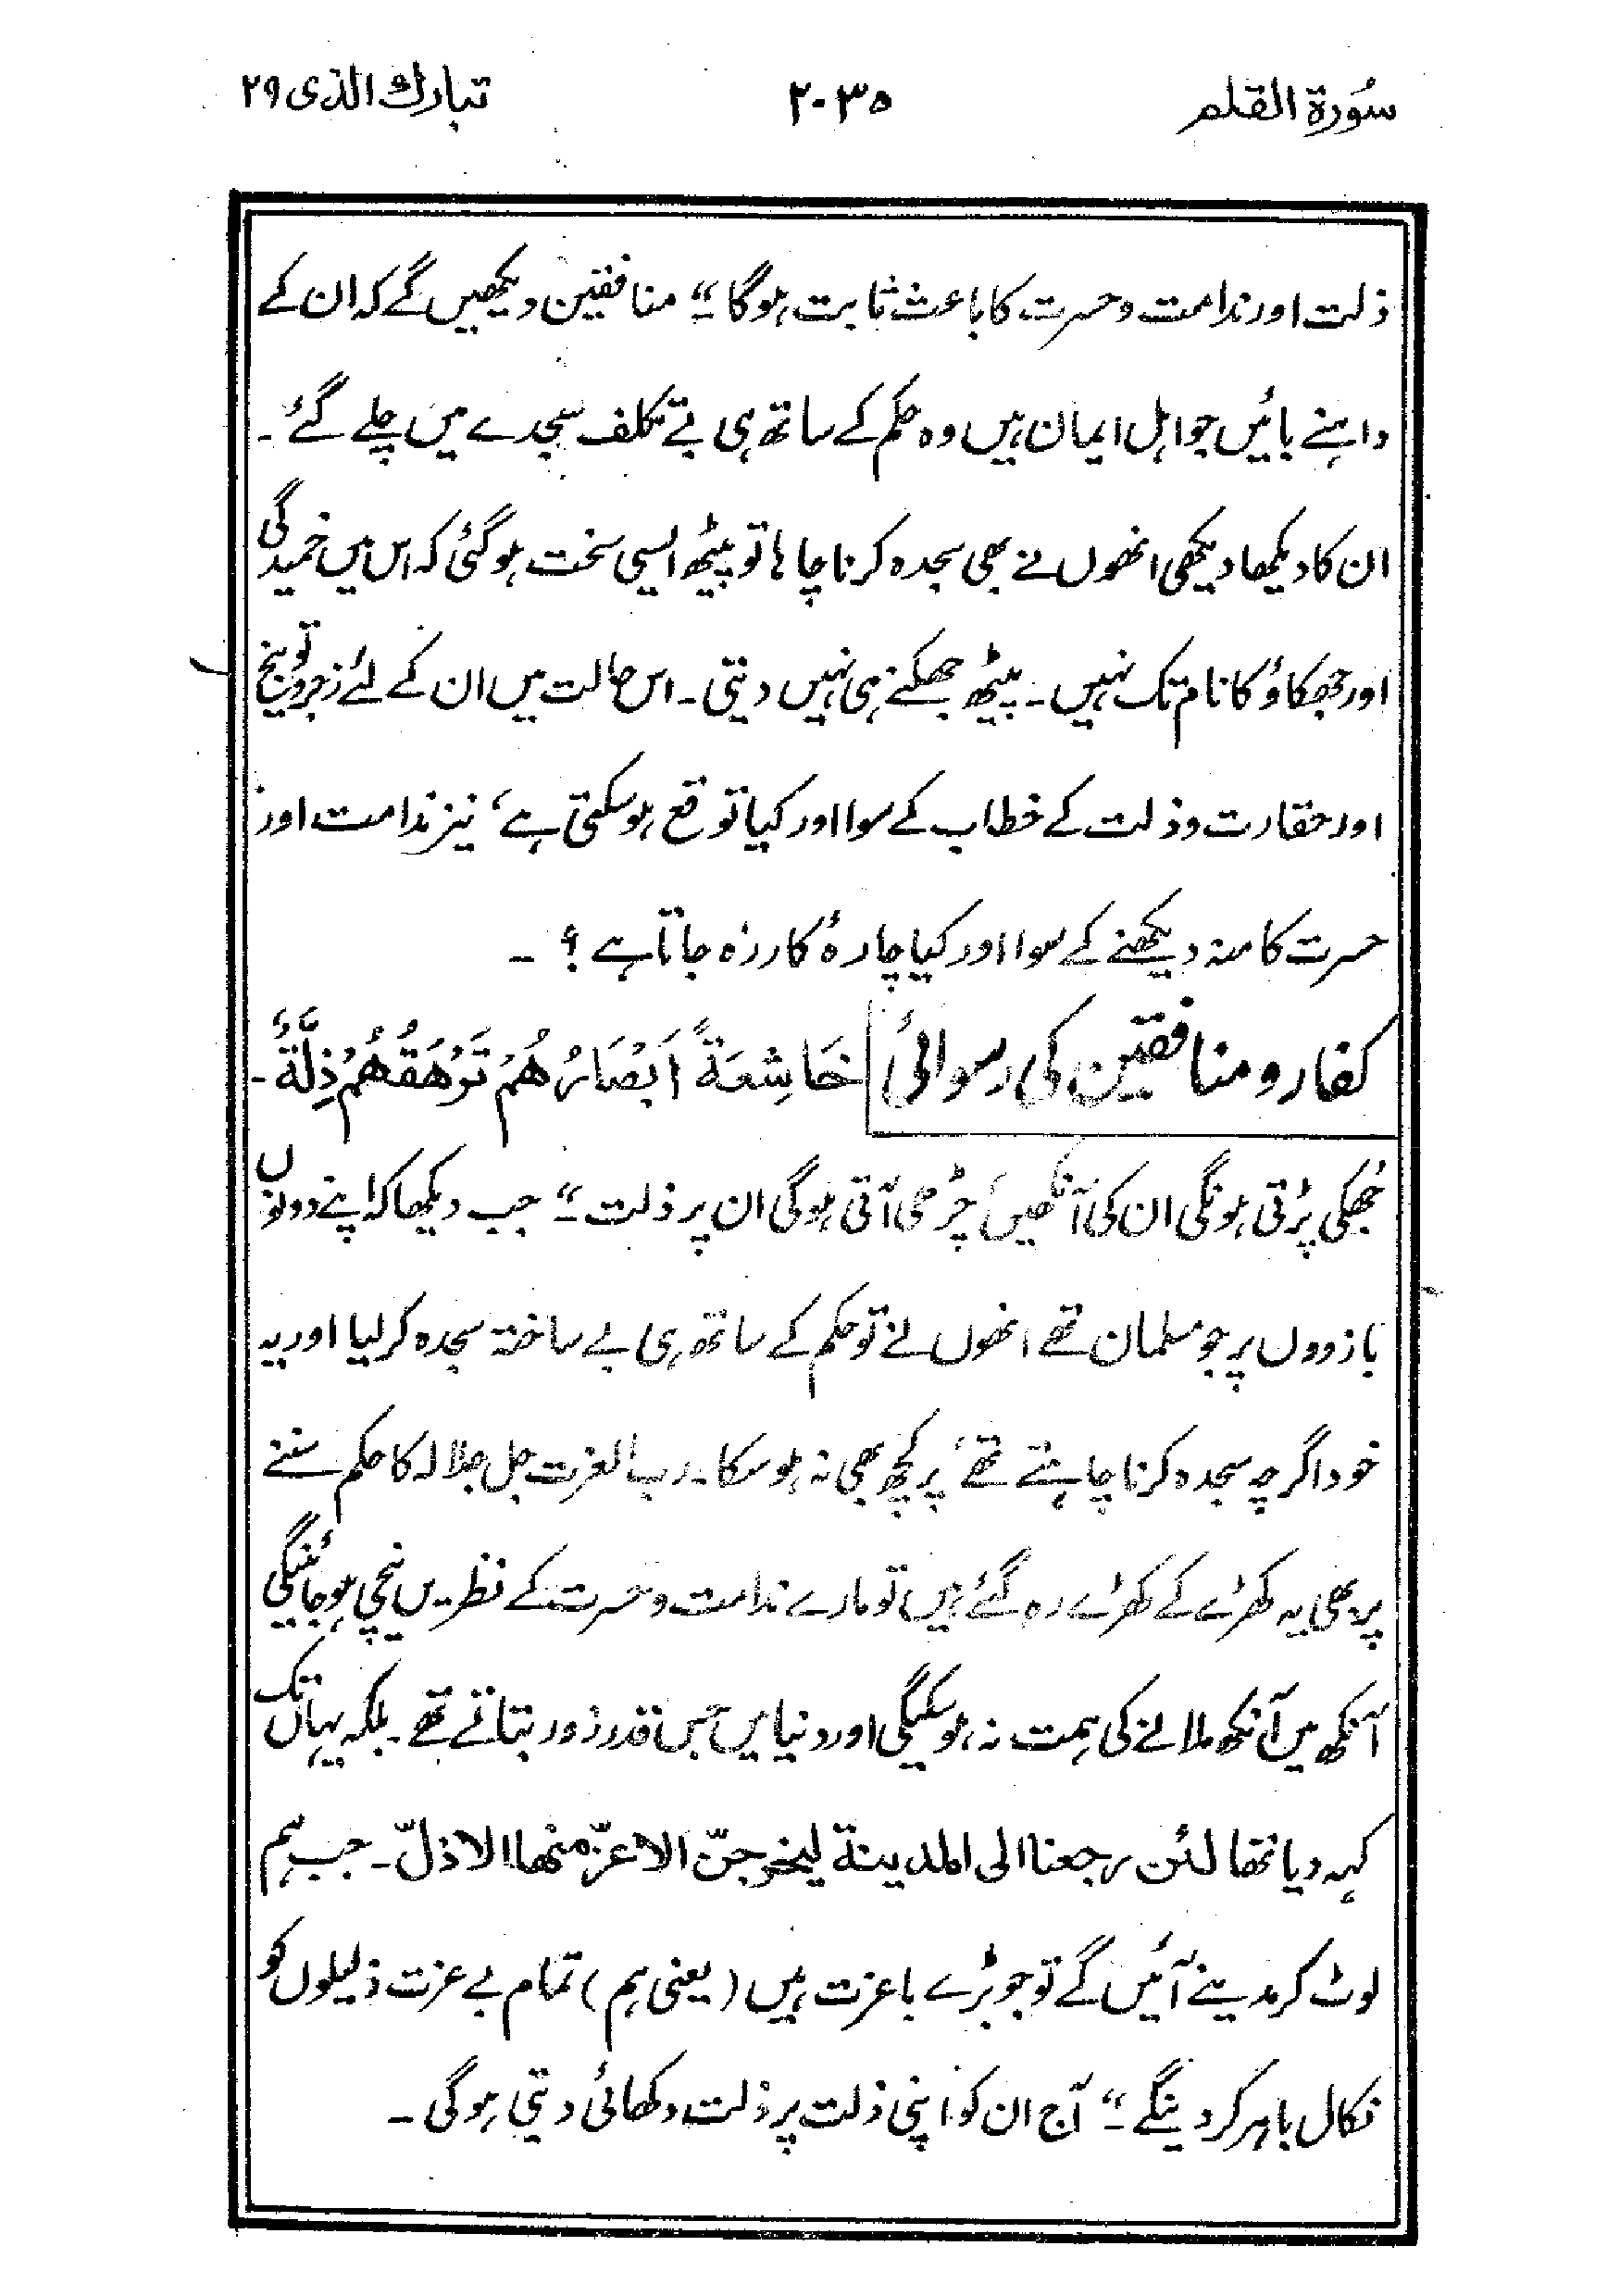 سُورة القلم ۲۰۳۵ تبارك الذی ۲۹
ذلت اور ندامت و حسرت کا باعث ثابت ہوگا“ منافقین دیکھیں گے کہ ان کے
داہنے بائیں جو اہل ایمان ہیں وہ حکم کے ساتھ ہی بے تکلف سجدے میں چلے گئے۔
ان کا دیکھا دیکھی انھوں نے بھی سجدہ کرنا چاہا تو پیٹھ ایسی سخت ہوگئی کہ اس میں خمیدگی
اور جھکاؤ کا نام تک نہیں۔ پیٹھ جھکنے ہی نہیں دیتی۔ اس حالت میں ان کے لئے زجر و توبیخ
اور حقارت و ذلت کے خطاب کے سوا اور کیا توقع ہوسکتی ہے، نیز ندامت اور
حسرت کا منہ دیکھنے کے سوا اور کیا چارۂ کار رہ جاتا ہے؟۔
کفار و منافقین کی رسوائی خَاشِعَةً اَبْصَارُهُمْ تَرْهَقُهُمْ ذِلَّةٌ۔
جُھکی پڑتی ہونگی ان کی آنکھیں، چڑھی آتی ہوگی ان پر ذلت“ جب دیکھا کہ اپنے دونوں
بازووں پر جو مسلمان تھے انھوں نے تو حکم کے ساتھ ہی بے ساختہ سجدہ کرلیا اور یہ
خود اگرچہ سجدہ کرنا چاہتے تھے، پر کچھ بھی نہ ہوسکا۔ رب العزت جل جلالہ کا حکم سننے
پر بھی یہ کھڑے کے کھڑے رہ گئے ہیں تو مارے ندامت و حسرت کے نظریں نیچی ہوجائینگی
آنکھ میں آنکھ ملانے کی ہمت نہ ہوسکیگی اور دنیا میں جس قدر زور بتاتے تھے۔ بلکہ یہاں تک
کہہ دیا تھا لئن رجعنا الی المدینة لیخرجنّ الاعزّ منها الاذلّ۔ جب ہم
لوٹ کر مدینے آئیں گے تو جو بڑے باعزت ہیں (یعنی ہم) تمام بے عزت ذلیلوں کو
نکال باہر کردینگے“ آج ان کو اپنی ذلت پر ذلت دکھائی دیتی ہوگی۔